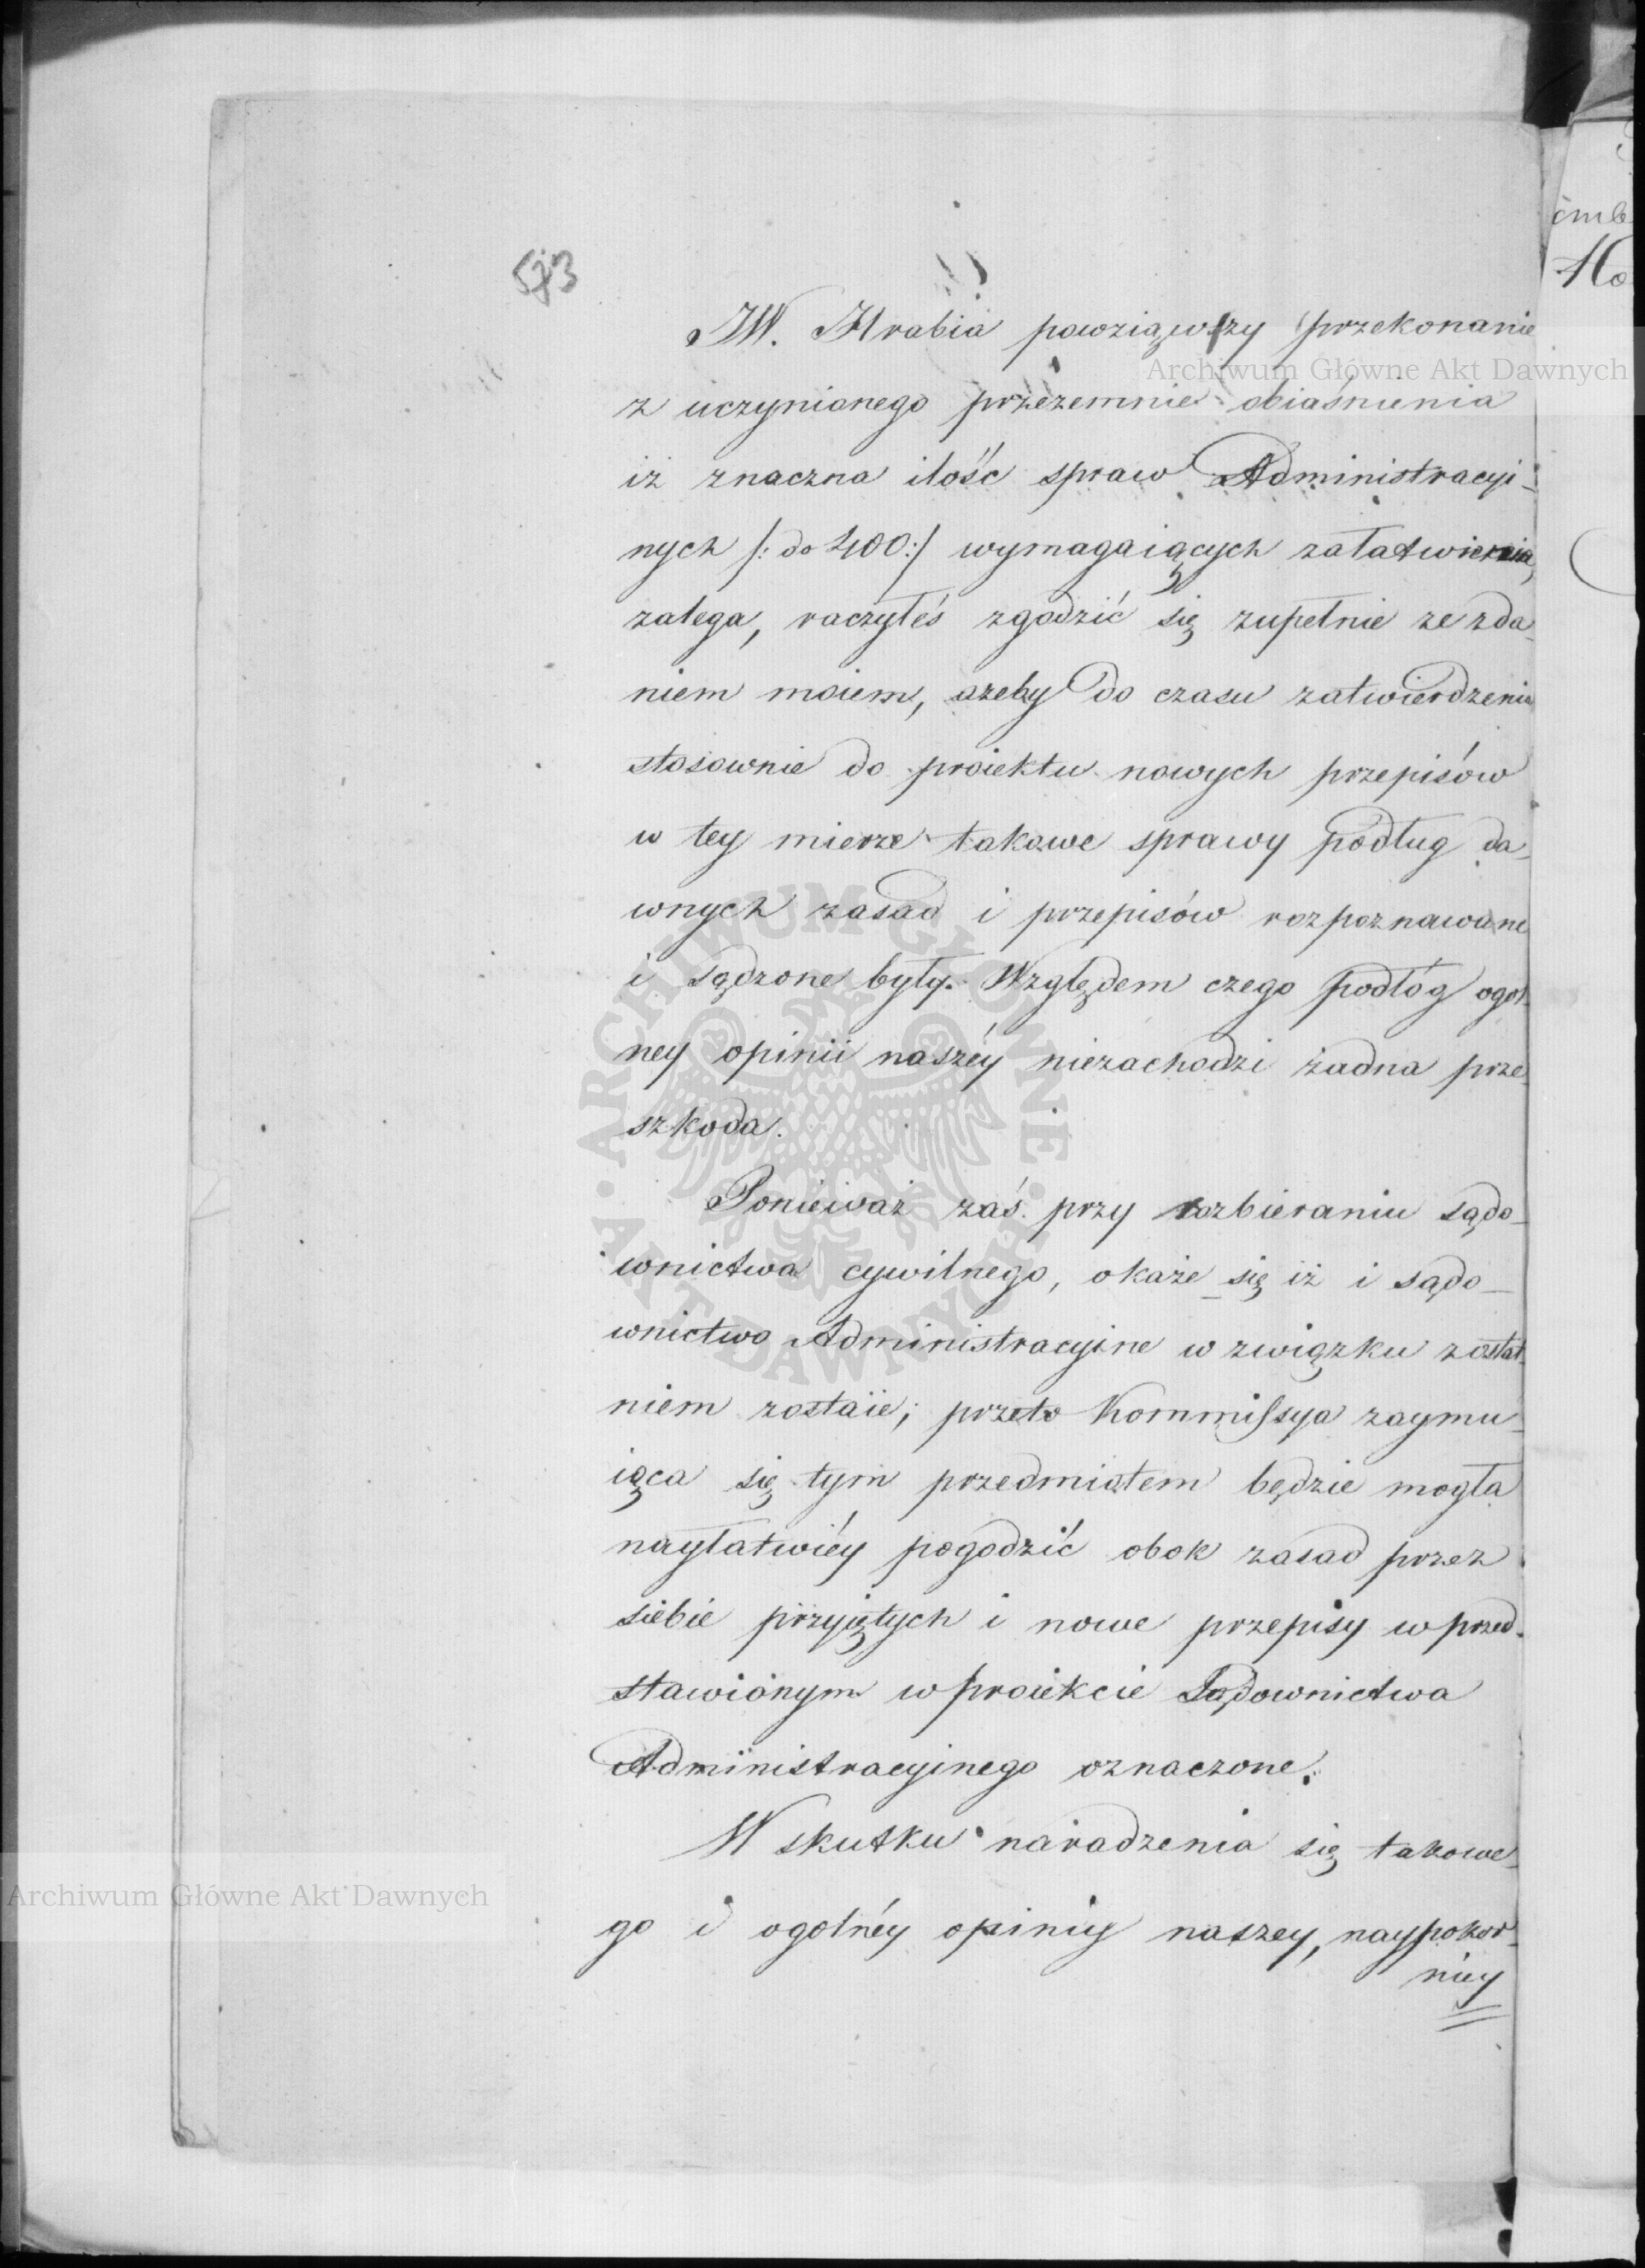 573
JW. Hrabia powziąwszy przekonanie
Archiwum Główne Akt Dawnych
z uczynionego przezemnie obiaśnienia
iż znaczna ilość spraw Administracyi-
nych /: do 400:/ wymagaiących załatwienia,
zalega, raczyłeś zgodzić się zupełnie ze zda-
niem moiem, ażeby do czasu zatwierdzenia
stosownie do proiektu nowych przepisów
w tey mierze takowe sprawy podług da-
wnych zasad i przepisów rozpoznawane
i sądzone były. Względem czego podłóg ogol-
ney opinii naszéy niezachodzi żadna prze-
szkoda.
Ponieiważ zaś przy rozbieraniu sądo-
wnictwa cywilnego, okaże się iż i sądo-
wnictwo Administracyine w związku zostat-
niem zostaie; przeto Kommissya zaymu-
iąca się tym przedmiotem będzie mogła
nayłatwiéy pogodzić obok zasad przez
siebie przyiętych i nowe przepisy w przed-
stawionym w proiekcie Sądownictwa
Administracyinego oznaczone.
W skutku naradzenia się takowe-
Archiwum Główne Akt Dawnych
go i ogolnéy opinij naszey, naypokor-
niey
ARCHIWUM GŁÓWNE AKT DAWNYCH